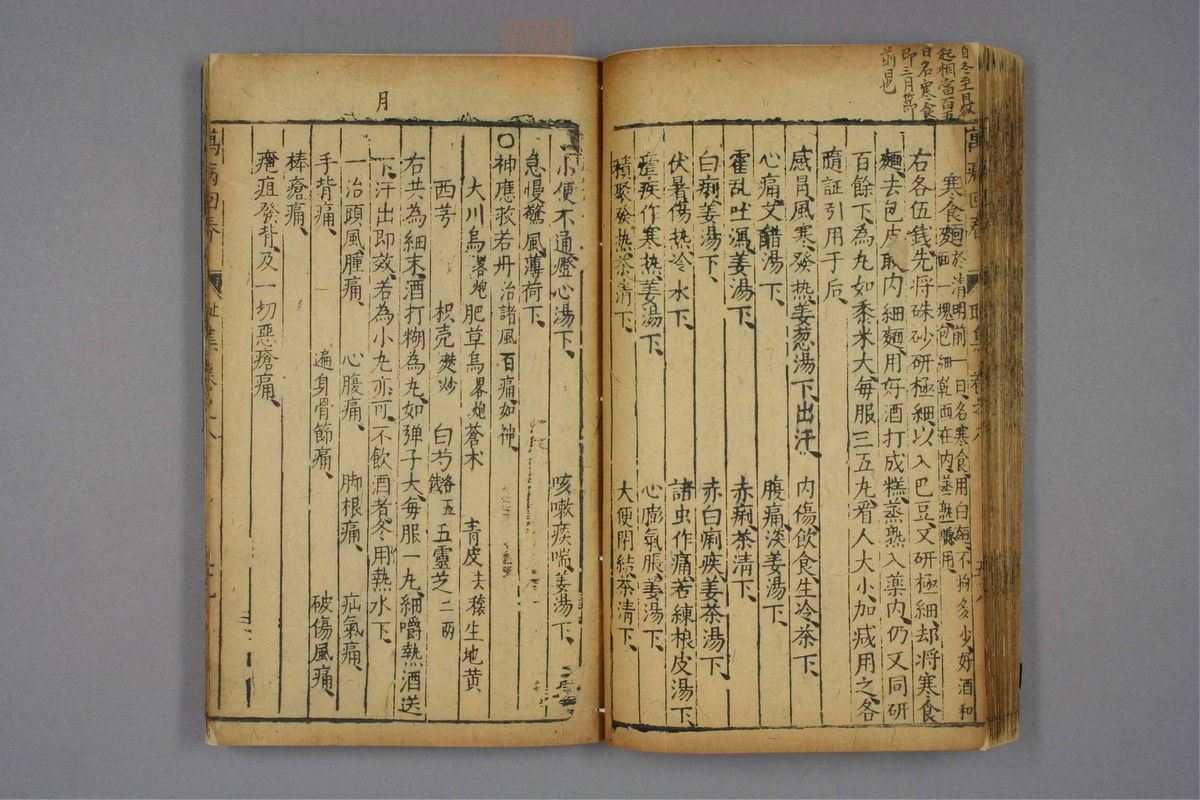 自冬至日数
起相當百五
日名寒食
即三月節
前也
寒食麵 於清明前一日名寒食用白麵不拘多少好酒和
一塊包細乾面在内蒸熟聽用
右各伍錢先将硃砂研極細以入巴豆又研極細却将寒食
麵去包皮取内細麵用好酒打成糕蒸熟入藥内仍又同研
百餘下為丸如黍米大每服三五丸看人大小加减用之各
隨証引用于后
感冐風寒發热姜葱湯下出汗 内傷飲食生冷茶下
心痛艾醋湯下 腹痛淡姜湯下
霍乱吐瀉姜湯下 赤痢茶清下
白痢姜湯下 赤白痢疾姜茶湯下
伏暑傷热冷水下 諸虫作痛苦練根皮湯下
瘧疾作寒热姜湯下 心膨氣脹姜湯下
積聚發热茶清下 大便閉結茶清下
小便不通燈心湯下 咳嗽痰喘姜湯下
急慢驚風薄荷下
〇神應救苦丹 治諸風百痛如神
大川烏 畧炮 肥草烏 畧炮 蒼术 青皮 去穰 生地黄
西芎 枳壳 麸炒 白芍 各五錢 五靈芝 二兩
右共為細末酒打糊為丸如弹子大每服一丸細嚼熱酒送
下汗出即效若為小丸亦可不飲酒者冬用熱水下
一治頭風腫痛 心腹痛 脚根痛 疝氣痛
手背痛 遍身骨節痛 破傷風痛
棒瘡痛
瘡疽發背及一切惡瘡痛
月
萬病回春